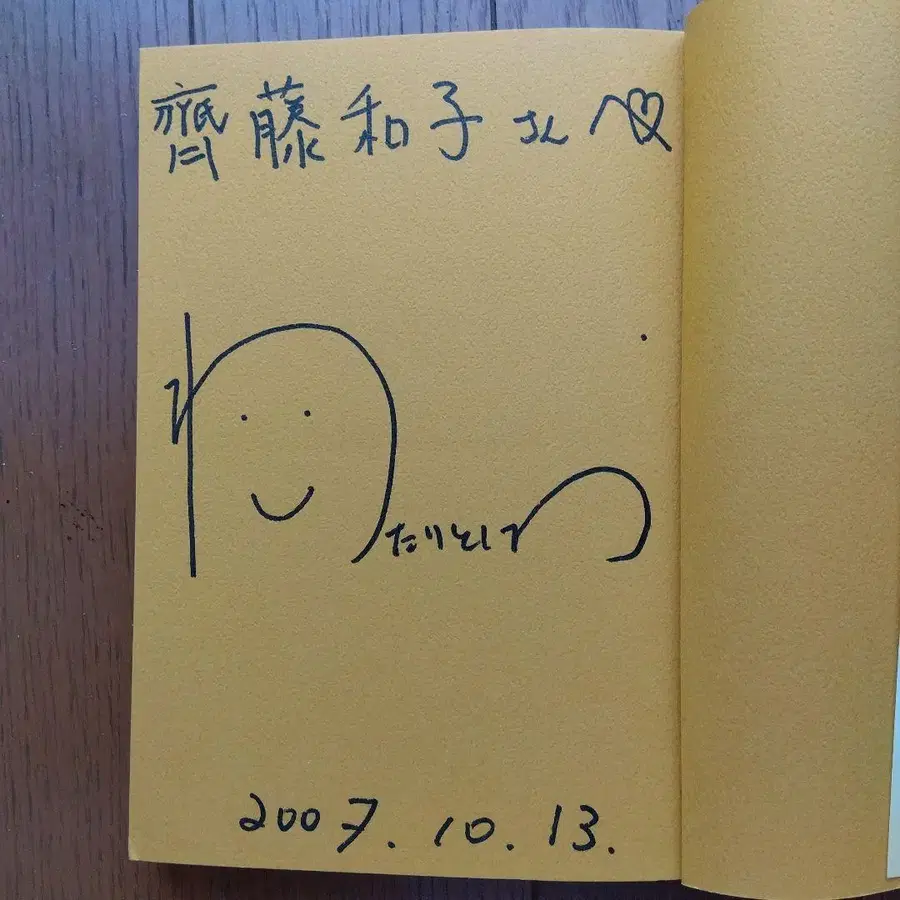 齊藤和子さんへ♡
わたりとしつ
2007.10.13.